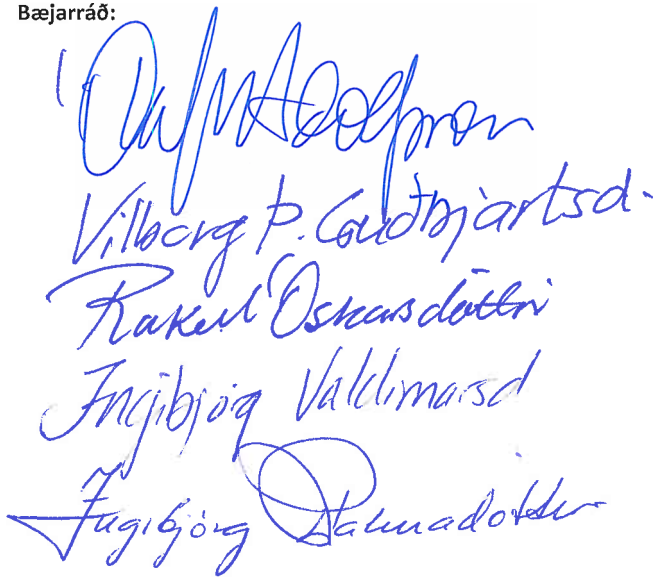 Bæjarráð:
Ólafur Adolfsson
Vilborg Þ. Guðbjartsd.
Rakel Óskarsdóttir
Ingibjörg Valdimarsd
Ingibjörg Pálmadóttir